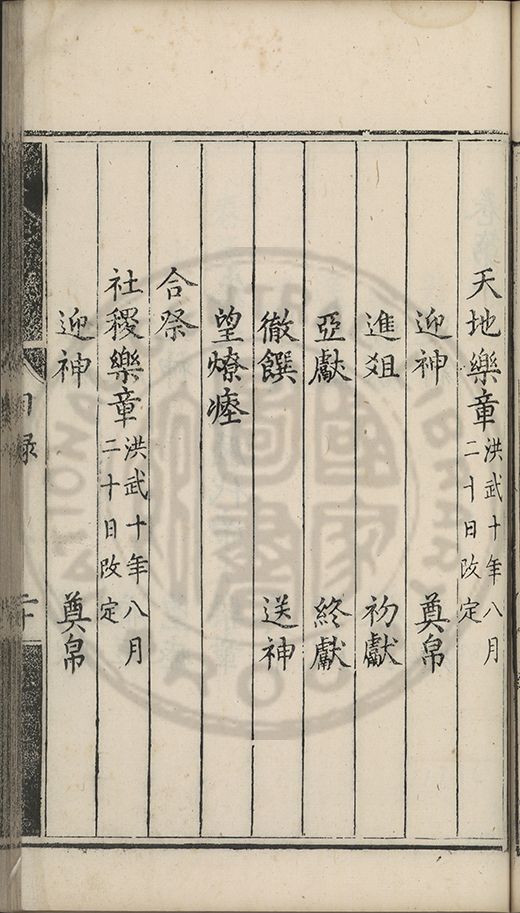 天地樂章洪武十年八月二十日改定
迎神 奠帛
進俎 初獻
亞獻 終獻
徹饌 送神
望燎瘞
合祭
社稷樂章洪武十年八月二十日改定
迎神 奠帛
目錄 二十